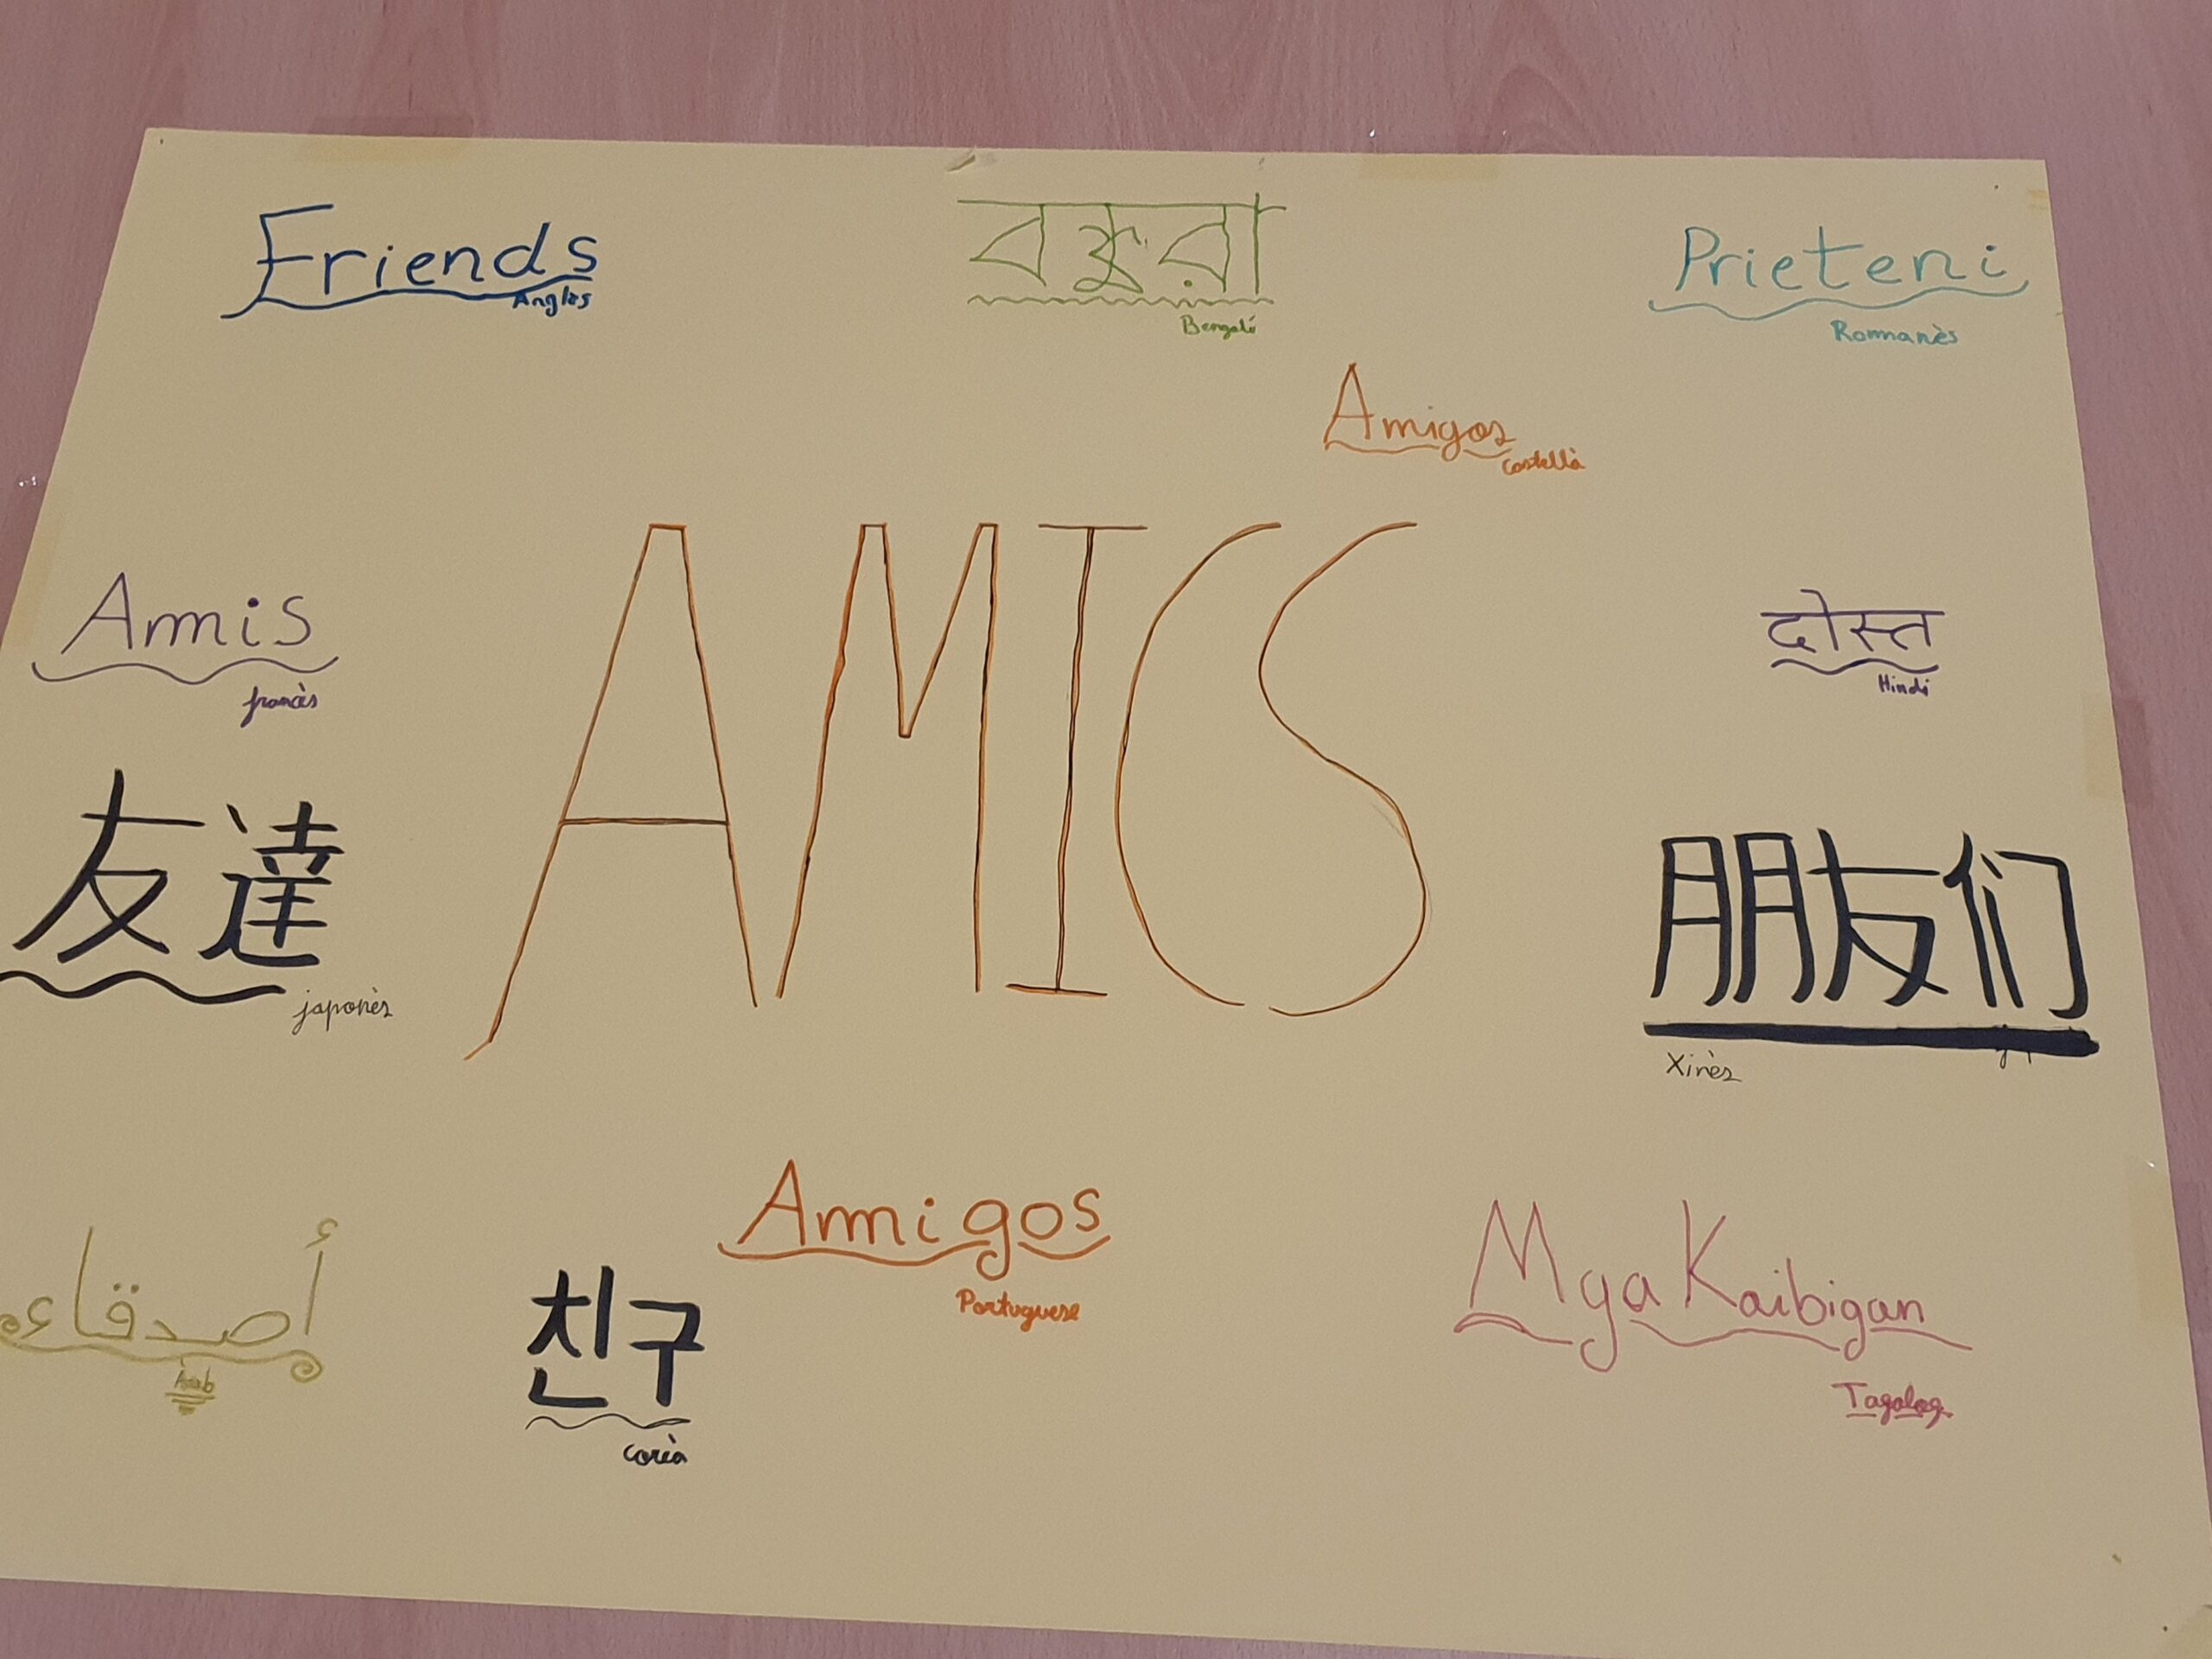 Friends
Anglès
বন্ধুরা
Bengalí
Prieteni
Romanès
Amigos
Castellà
AMICS
Amis
francès
दोस्त
Hindi
友達
japonès
朋友们
Xinès
Amigos
Portuguese
أصدقاء
Àrab
친구
Coreà
Mga Kaibigan
Tagalog